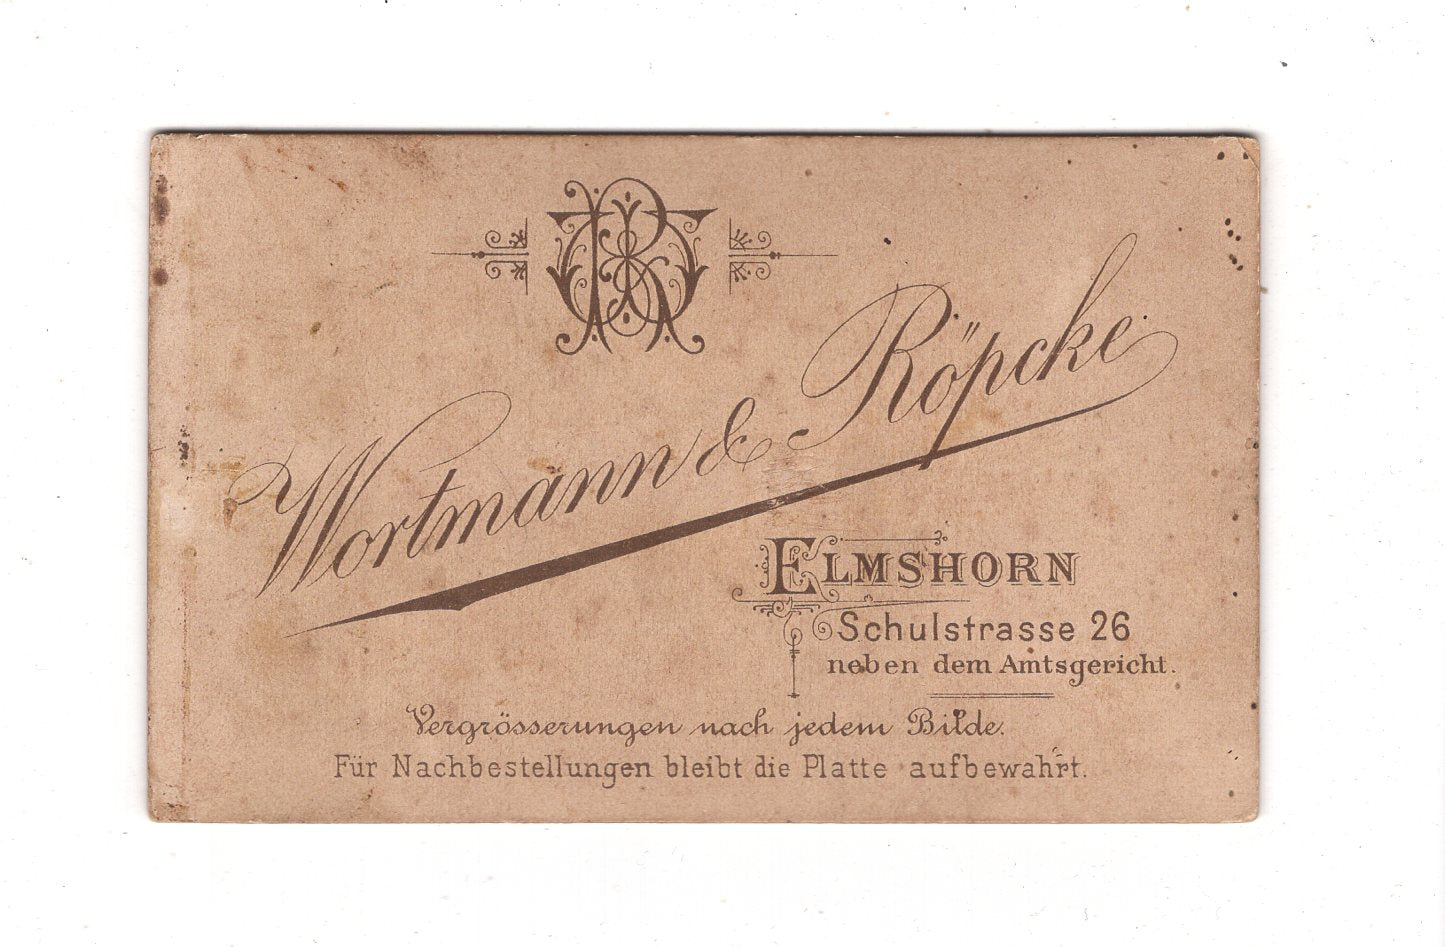 Wortmann & Röpcke
ELMSHORN
Schulstrasse 26
neben dem Amtsgericht.
Vergrösserungen nach jedem Bilde.
Für Nachbestellungen bleibt die Platte aufbewahrt.